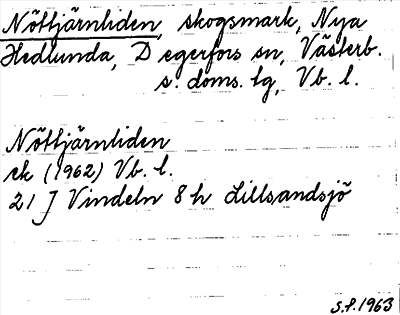 Nöttjärnliden, skogsmark, Nya
Hedlunda, Degerfors sn, Västerb.
s. doms. lg, Vb. l.
Nöttjärnliden
ek (1962) Vb. l.
21 J Vindeln 8 h Lillsandsjö
S.P. 1963